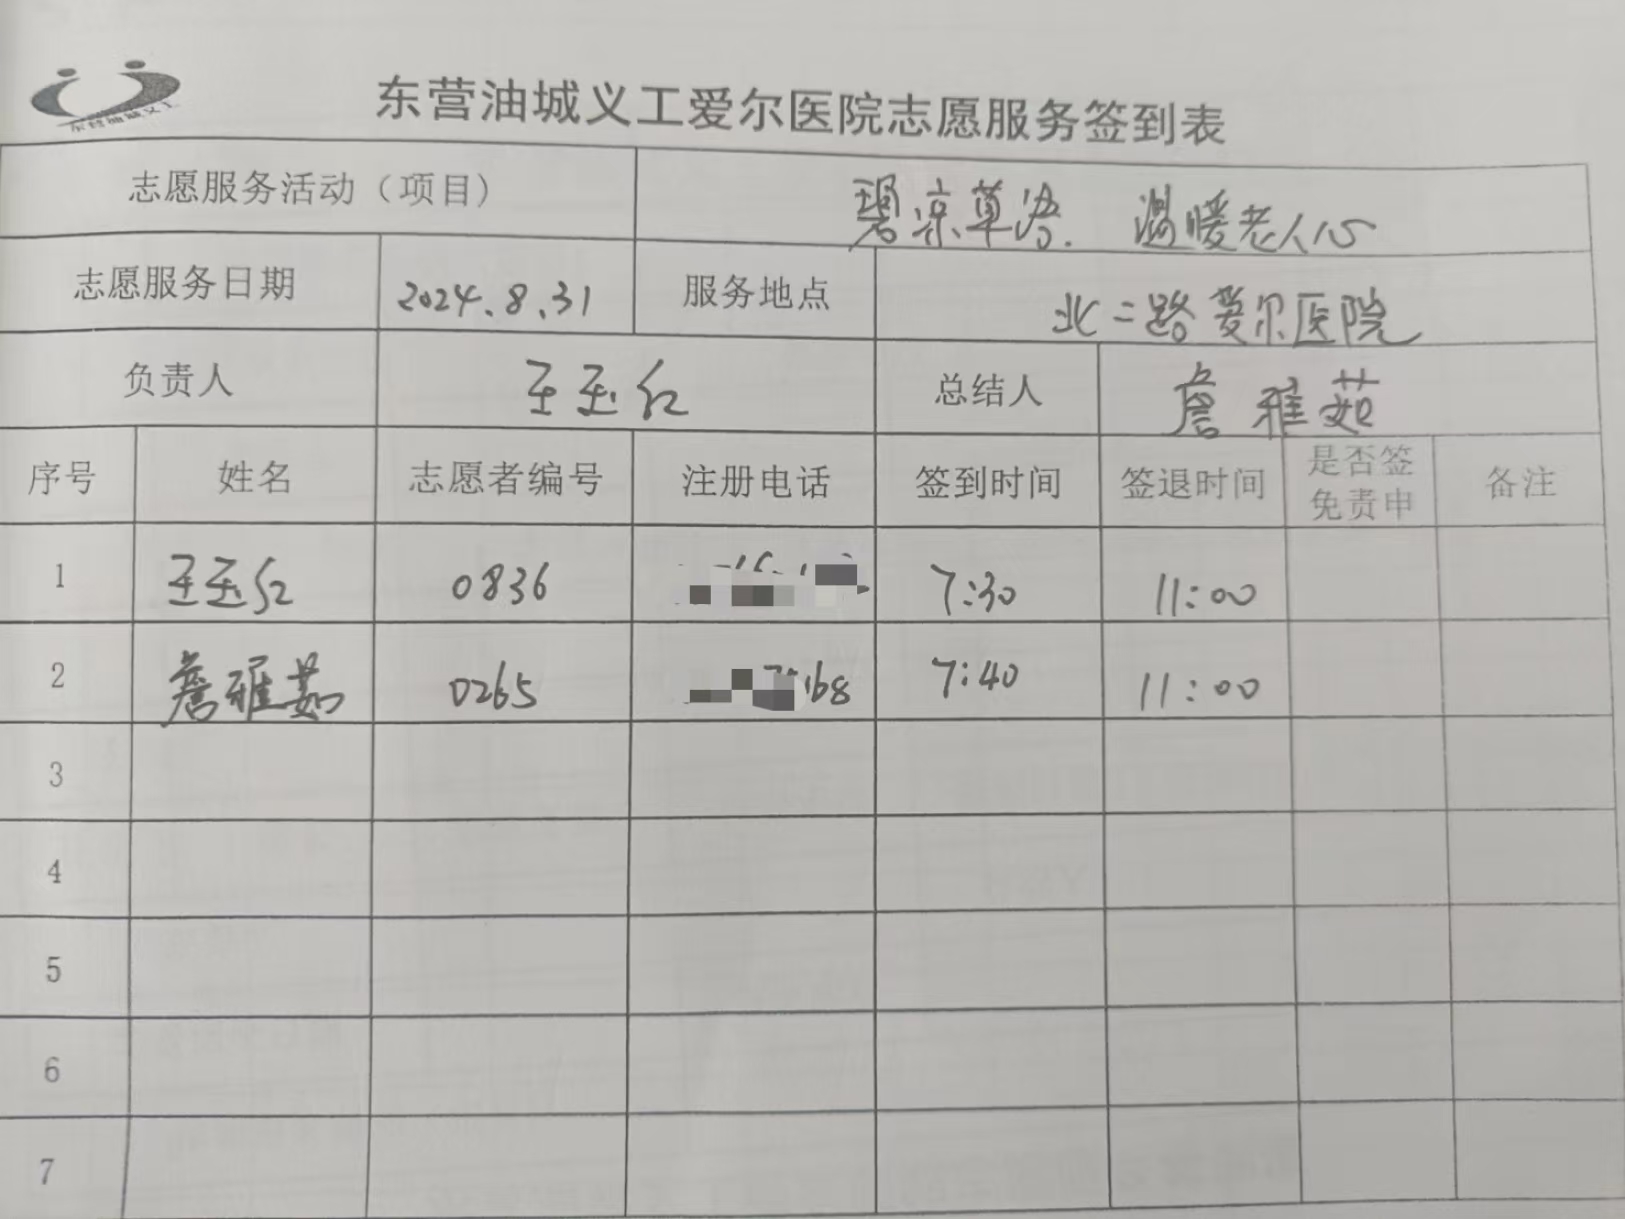 东营油城义工
东营油城义工爱尔医院志愿服务签到表
志愿服务活动（项目） 碧凉草 温暖老人心
志愿服务日期 2024.8.31 服务地点 北二路爱尔医院
负责人 王玉红 总结人 詹雅茹
序号 姓名 志愿者编号 注册电话 签到时间 签退时间 是否签免责申 备注
1 王玉红 0836 7:30 11:00
2 詹雅茹 0265 168 7:40 11:00
3
4
5
6
7